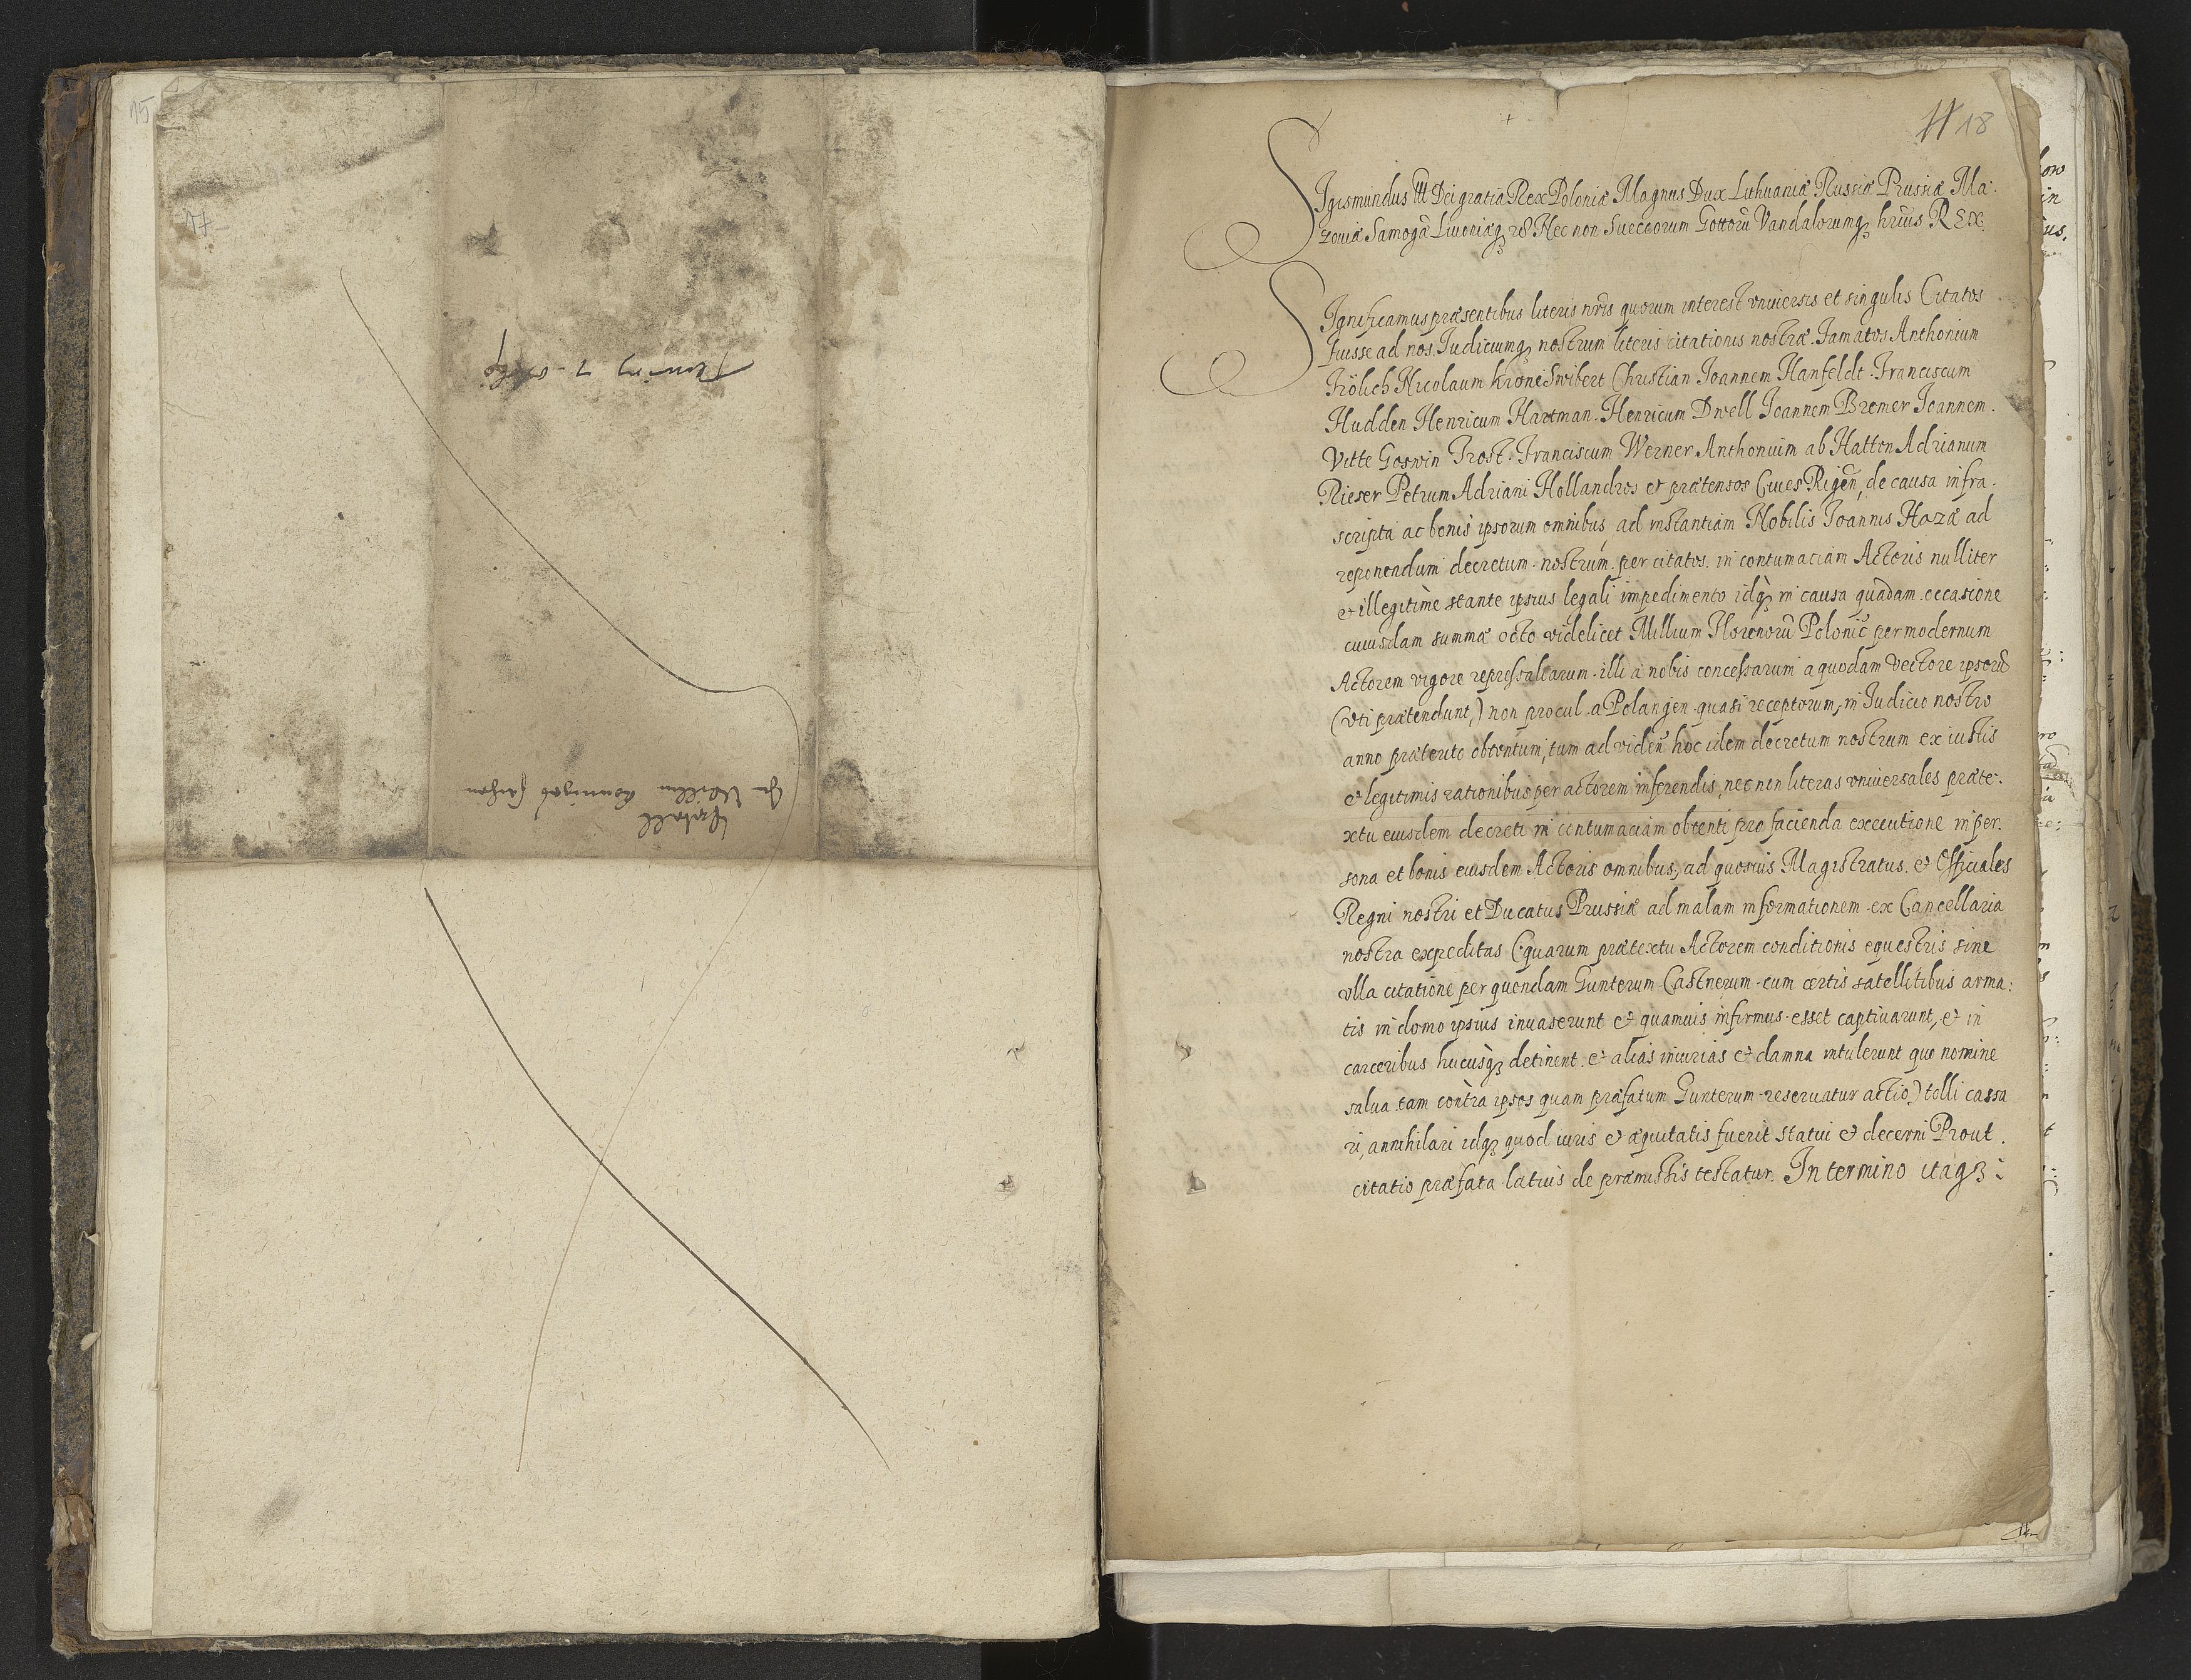 15
17
18
SIgismundus III Dei gratia Rex Poloniæ Magnus Dux Lithuaniæ Russiæ Prussiæ Ma:
zouiæ Samog̃ Liuoniæq3 Nec non Suecorum Gottorũ Vandalorumq3 hr̃ius REX.
SIgnificamus præsentibus literis nr̃is quorum interest vniuersis et singulis Citatos
fuisse ad nos. Iudiciumq3 nostrum literis citationis nostræ. Famatos Anthonium
Frölich Nicolaum Krone Swibert Christian Ioannem Hanfeldt. Franciscum
Hudden Henricum Hartman. Henricum Dwell Ioannem Bremer Ioannem.
Vitte Goswin Trost. Franciscum Werner Anthonium ab Hatten Adrianum
Rieser Petrum Adriani Hollandros et prætensos Ciues Rigeñ, de causa infra.
scripta ac bonis ipsorum omnibus, ad instantiam Nobilis Ioannis Hazæ ad
reponendum decretum nostrum. per citatos. in contumaciam Actoris nulliter
et illegitimè stante ipsius legali impedimento idq3 in causa quadam occasione
cuiusdam summæ octo videlicet Millium Florenorũ Polonic̃ per modernum
Actorem vigore repressalearum illi à nobis concessarum a quodam Vectore ipsorũ
(vti prætendunt,) non procul a Polangen quasi receptorum, in Iudicio nostro
anno præterito obtentum, tum ad videñ hoc idem decretum nostrum ex iustis
et legitimis rationibus per actorem inferendis, nec non literas vniuersales præte:
xtu eiusdem decreti in contumaciam obtenti pro facienda executione in per:
sona et bonis eiusdem Actoris omnibus, ad quosuis Magistratus. et Officiales
Regni nostri et Ducatus Prussiæ ad malam informationem ex Cancellaria
nostra expeditas (quarum prætextu Actorem conditionis equestris sine
vlla citatione per quendam Gunterum Castnerum cum certis satellitibus arma:
tis in domo ipsius inuaserunt et quamuis infirmus esset captiuarunt, et in
carceribus hucusq3 detinent. et alias iniurias et damna intulerunt quo nomine
salua tam contra ipsos quam præfatum Gunterum reseruatur actio,) tolli cassa
ri, annihilari idq3 quod iuris et æquitatis fuerit statui et decerni Prout.
citatio præfata latius de præmissis testatur. In termino itaq3: